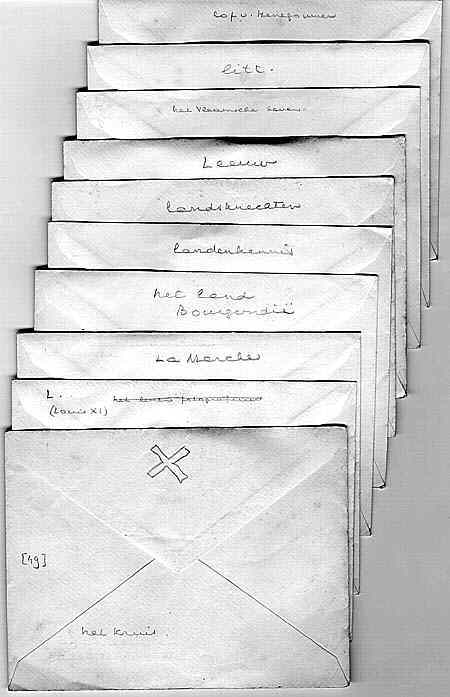 litt.
het Vlaamsche leven.
Leeuw
landsknechten
landenkennis
het land
Bourgondië
La Marche
L.
(Louis XI)
het leven
[49]
het kruis.